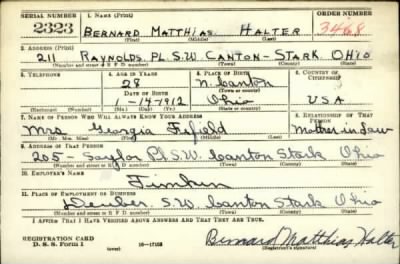 SERIAL NUMBER 1. NAME (Print) ORDER NUMBER
2323 BERNARD MATTHIAS HALTER 3468
(First) (Middle) (Last)
2. ADDRESS (Print)
211 RAYNOLDS PL S.W. CANTON - STARK OHIO
(Number and street or R. F. D. number) (Town) (County) (State)
3. TELEPHONE 4. AGE IN YEARS 5. PLACE OF BIRTH 6. COUNTRY OF CITIZENSHIP
28 N. Canton
DATE OF BIRTH (Town or county)
-14-1912 Ohio USA
(Exchange) (Number) (Mo.) (Day) (Yr.) (State or country)
7. NAME OF PERSON WHO WILL ALWAYS KNOW YOUR ADDRESS 8. RELATIONSHIP OF THAT PERSON
Mrs Georgia Fifield Mother in Law
(Mr., Mrs., Miss) (First) (Middle) (Last)
9. ADDRESS OF THAT PERSON
205 - Saylor Pl S.W. Canton Stark Ohio
(Number and street or R. F. D. number) (Town) (County) (State)
10. EMPLOYER'S NAME
Timken
11. PLACE OF EMPLOYMENT OR BUSINESS
Dueber S.W. Canton Stark Ohio
(Number and street or R. F. D. number) (Town) (County) (State)
I AFFIRM THAT I HAVE VERIFIED ABOVE ANSWERS AND THAT THEY ARE TRUE.
REGISTRATION CARD
D. S. S. Form 1 16-17105 Bernard Matthias Halter
(Registrant's signature)